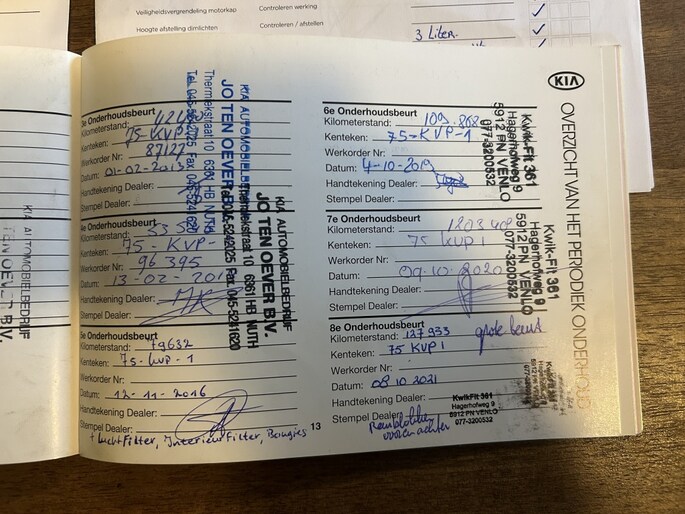 Veiligheidsvergrendeling motorkap Controleren werking
Hoogte afstelling dimlichten Controleren / afstellen
3 Liter.
KIA
OVERZICHT VAN HET PERIODIEK ONDERHOUD
KIA AUTOMOBIELBEDRIJF
TEN OEVER B.V.
3e Onderhoudsbeurt
Kilometerstand:
Kenteken: 75-KVP-1
Werkorder Nr: 87127
Datum: 01-02-2013
Handtekening Dealer:
Stempel Dealer:
KIA AUTOMOBIELBEDRIJF
JO TEN OEVER B.V.
Thermekstraat 10 6361 HB NUTH
4e Onderhoudsbeurt
Kilometerstand:
Kenteken: 75-KVP-
Werkorder Nr: 96395
Datum: 13-02-201
Handtekening Dealer:
Stempel Dealer:
KIA AUTOMOBIELBEDRIJF
JO TEN OEVER B.V.
Thermekstraat 10 6361 HB NUTH
Tel. 045-5242025 Fax. 045-5241620
5e Onderhoudsbeurt
Kilometerstand: 79632
Kenteken: 75-kvp-1
Werkorder Nr:
Datum: 12-11-2016
Handtekening Dealer:
Stempel Dealer:
+ Luchtfilter, Interieurfilter, Bougies
13
6e Onderhoudsbeurt
Kilometerstand: 109.868
Kenteken: 75-KVP-1
Werkorder Nr:
Datum: 4-10-2019
Handtekening Dealer:
Stempel Dealer:
Kwik-Fit 361
Hagerhofweg 9
5912 PN VENLO
077-3200532
7e Onderhoudsbeurt
Kilometerstand:
Kenteken: 75 KVP 1
Werkorder Nr:
Datum: 09-10-2020
Handtekening Dealer:
Stempel Dealer:
Kwik-Fit 361
Hagerhofweg 9
5912 PN VENLO
077-3200532
8e Onderhoudsbeurt
Kilometerstand: 127933 grote beurt
Kenteken: 75 KVP 1
Werkorder Nr:
Datum: 08 10 2021
Handtekening Dealer:
Stempel Dealer:
KwikFit 361
Hagerhofweg 9
5912 PN VENLO
077-3200532
Remblokken